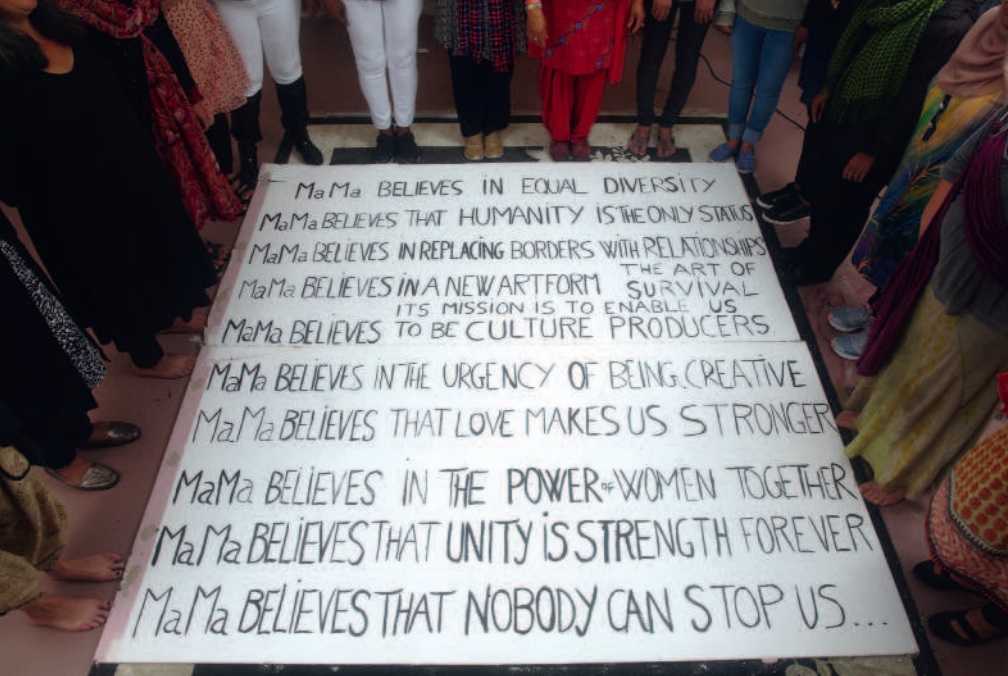 MaMa BELIEVES IN EQUAL DIVERSITY
MaMa BELIEVES THAT HUMANITY IS THE ONLY STATUS
MaMa BELIEVES IN REPLACING BORDERS WITH RELATIONSHIPS
MaMa BELIEVES IN A NEW ARTFORM THE ART OF SURVIVAL
ITS MISSION IS TO ENABLE US
MaMa BELIEVES TO BE CULTURE PRODUCERS
MaMa BELIEVES IN THE URGENCY OF BEING CREATIVE
MaMa BELIEVES THAT LOVE MAKES US STRONGER
MaMa BELIEVES IN THE POWER OF WOMEN TOGETHER
MaMa BELIEVES THAT UNITY IS STRENGTH FOREVER
MaMa BELIEVES THAT NOBODY CAN STOP US...